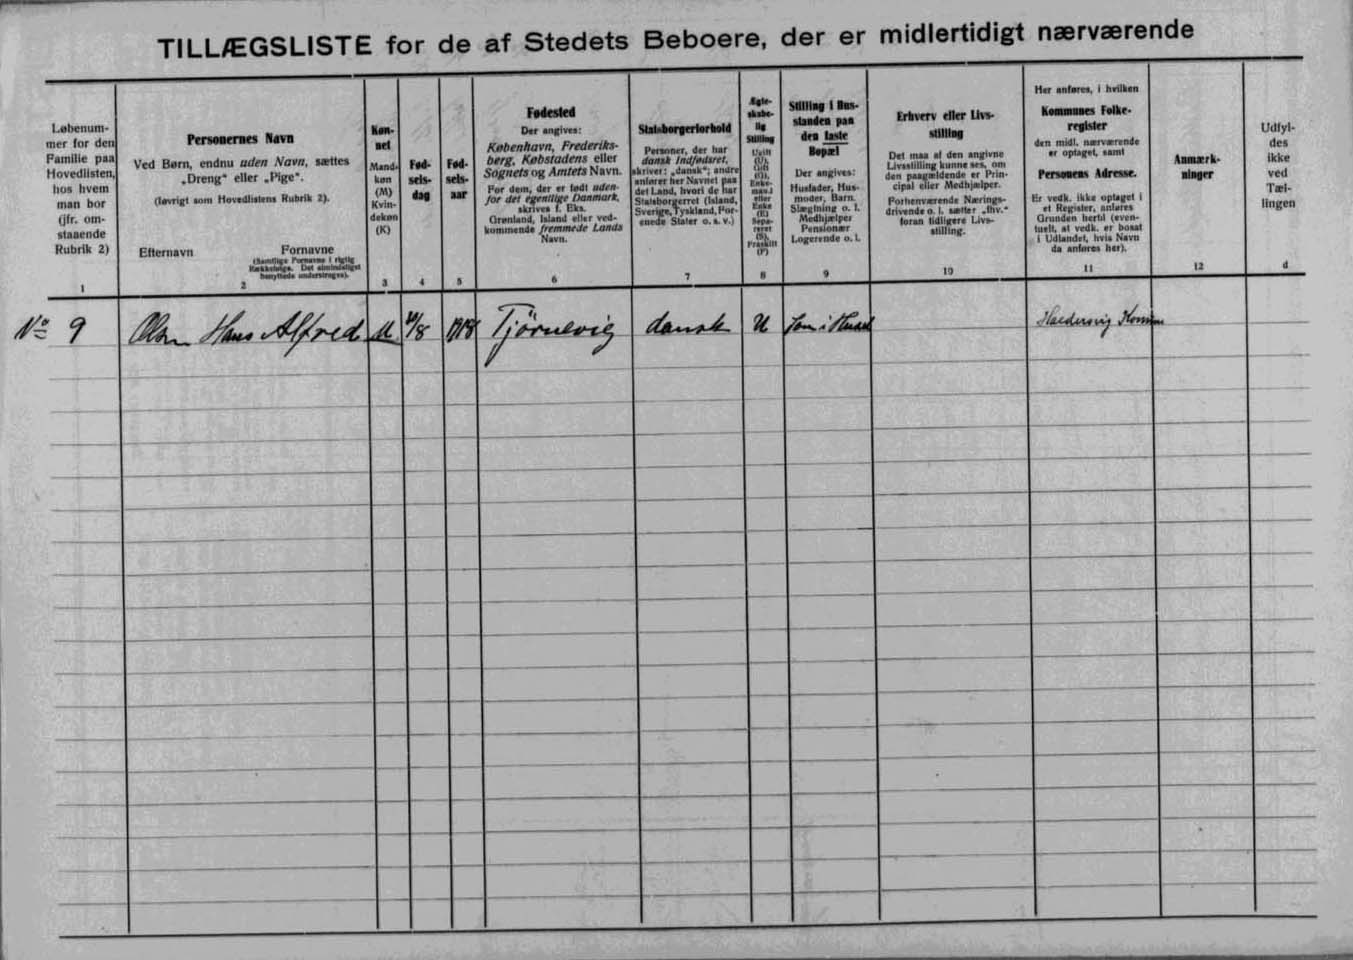 TILLÆGSLISTE for de af Stedets Beboere, der er midlertidigt nærværende
Løbenum-
mer for den
Familie paa
Hovedlisten,
hos hvem
man bor
(jfr. om-
staaende
Rubrik 2)
1
Personernes Navn
Ved Børn, endnu uden Navn, sættes
„Dreng“ eller „Pige“.
(Iøvrigt som Hovedlistens Rubrik 2).
Efternavn
Fornavne
(Samtlige Fornavne i rigtig
Rækkefølge. Det almindeligst
benyttede understreges).
2
Køn-
net
Mand-
køn
(M)
Kvin-
dekøn
(K)
3
Fød-
sels-
dag
4
Fød-
sels-
aar
5
Fødested
Der angives:
København, Frederiks-
berg, Købstadens eller
Sognets og Amtets Navn.
For dem, der er født uden-
for det egentlige Danmark,
skrives f. Eks.
Grønland, Island eller ved-
kommende fremmede Lands
Navn.
6
Statsborgerforhold
Personer, der har
dansk Indfødsret,
skriver: „dansk“; andre
anfører her Navnet paa
det Land, hvori de har
Statsborgerret (Island,
Sverige, Tyskland, For-
enede Stater o. s. v.)
7
Ægte-
skabe-
lig
Stilling
Ugift
(U),
Gift
(G),
Enke-
mand
eller
Enke
(E)
Sepa-
reret
(S),
Fraskilt
(F)
8
Stilling i Hus-
standen paa
den faste
Bopæl
Der angives:
Husfader, Hus-
moder, Barn,
Slægtning o. l.
Medhjælper
Pensionær
Logerende o. l.
9
Erhverv eller Livs-
stilling
Det maa af den angivne
Livsstilling kunne ses, om
den paagældende er Prin-
cipal eller Medhjælper.
Forhenværende Nærings-
drivende o. l. sætter „fhv.“
foran tidligere Livs-
stilling.
10
Her anføres, i hvilken
Kommunes Folke-
register
den midl. nærværende
er optaget, samt
Personens Adresse.
Er vedk. ikke optaget i
et Register, anføres
Grunden hertil (even-
tuelt, at vedk. er bosat
i Udlandet, hvis Navn
da anføres her).
11
Anmærk-
ninger
12
Udfyl-
des
ikke
ved
Tæl-
lingen
d
No 9 Olsen Hans Alfred M /8 1918 Tjörnevig dansk U Søn i Huset Haldersvig Komm